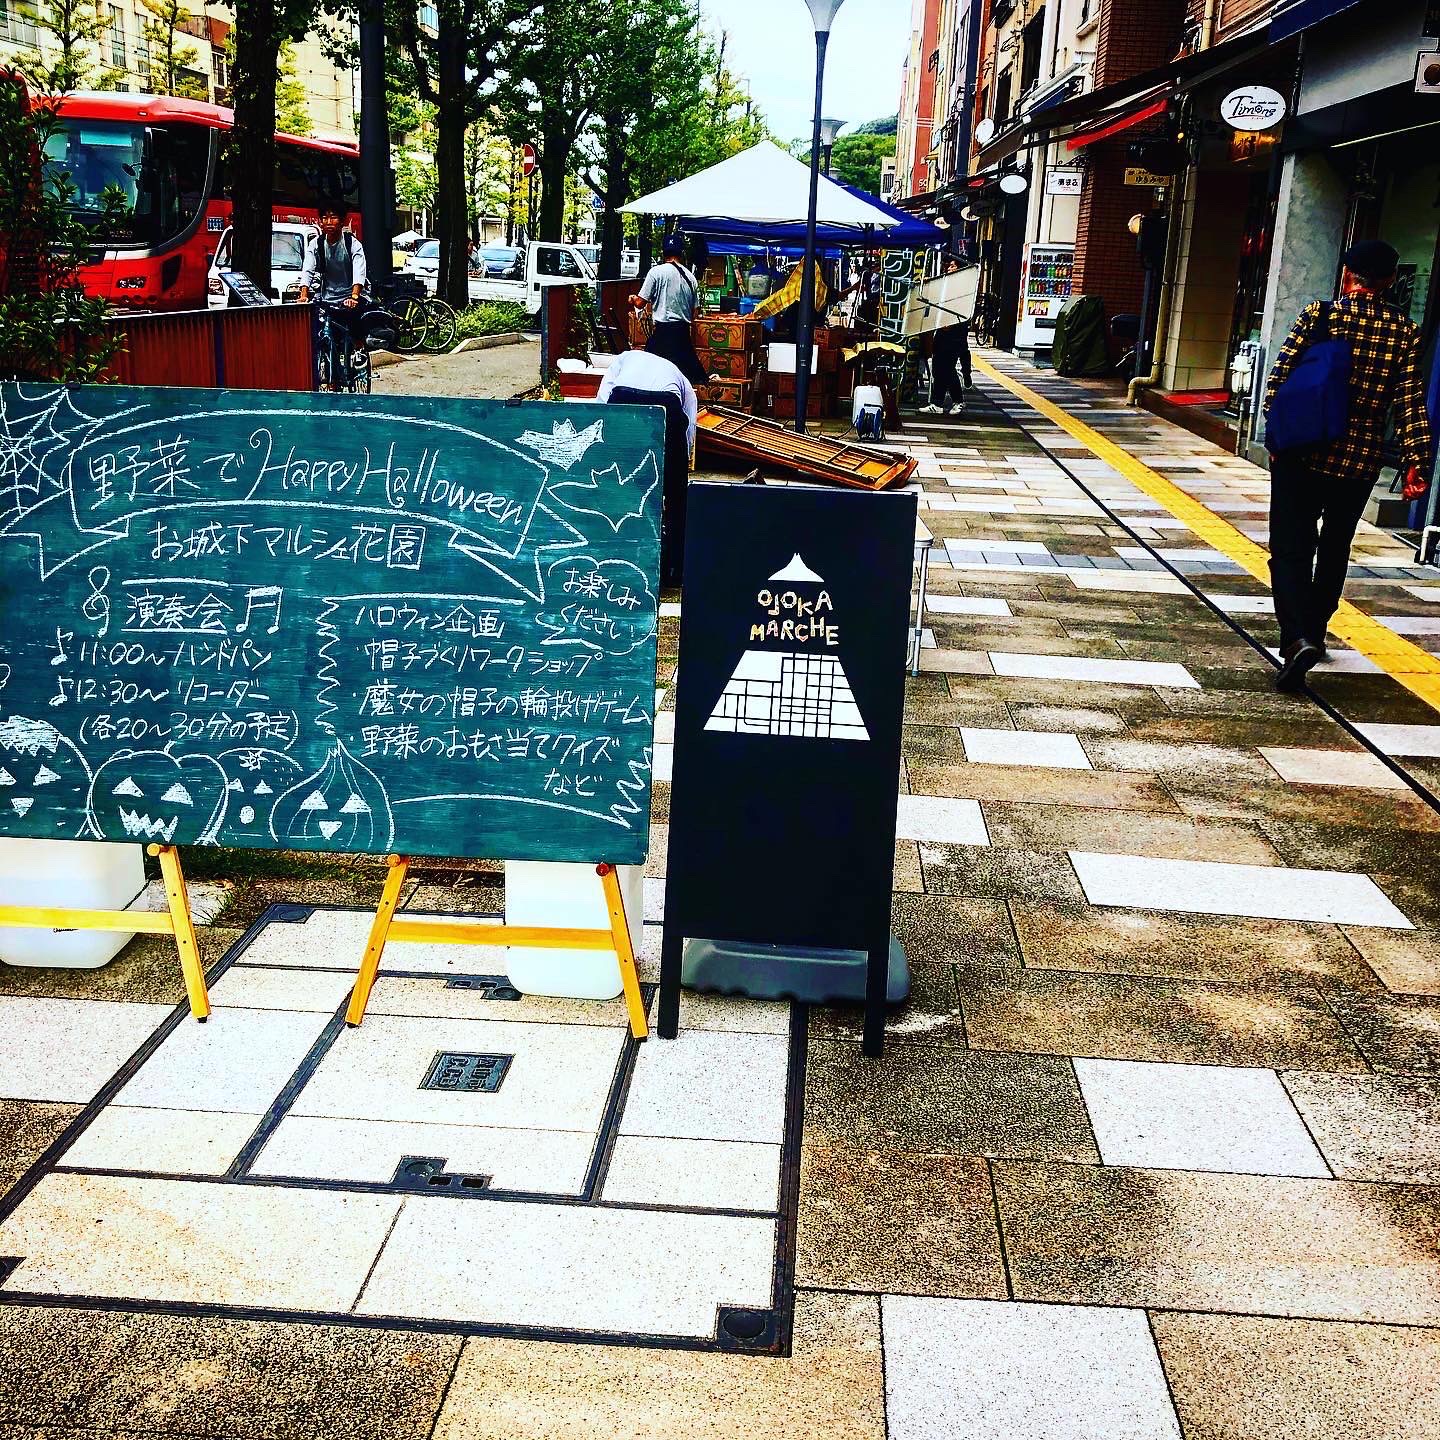 野菜でHappy Halloween
お城下マルシェ花園
演奏会
11:00～ハンドパン
12:30～リコーダー
(各20～30分の予定)
お楽しみ
ください
ハロウィン企画
・帽子づくりワークショップ
・魔女の帽子の輪投げゲーム
・野菜のおもさ当てクイズ
など
OJOKA
MARCHE
Timone